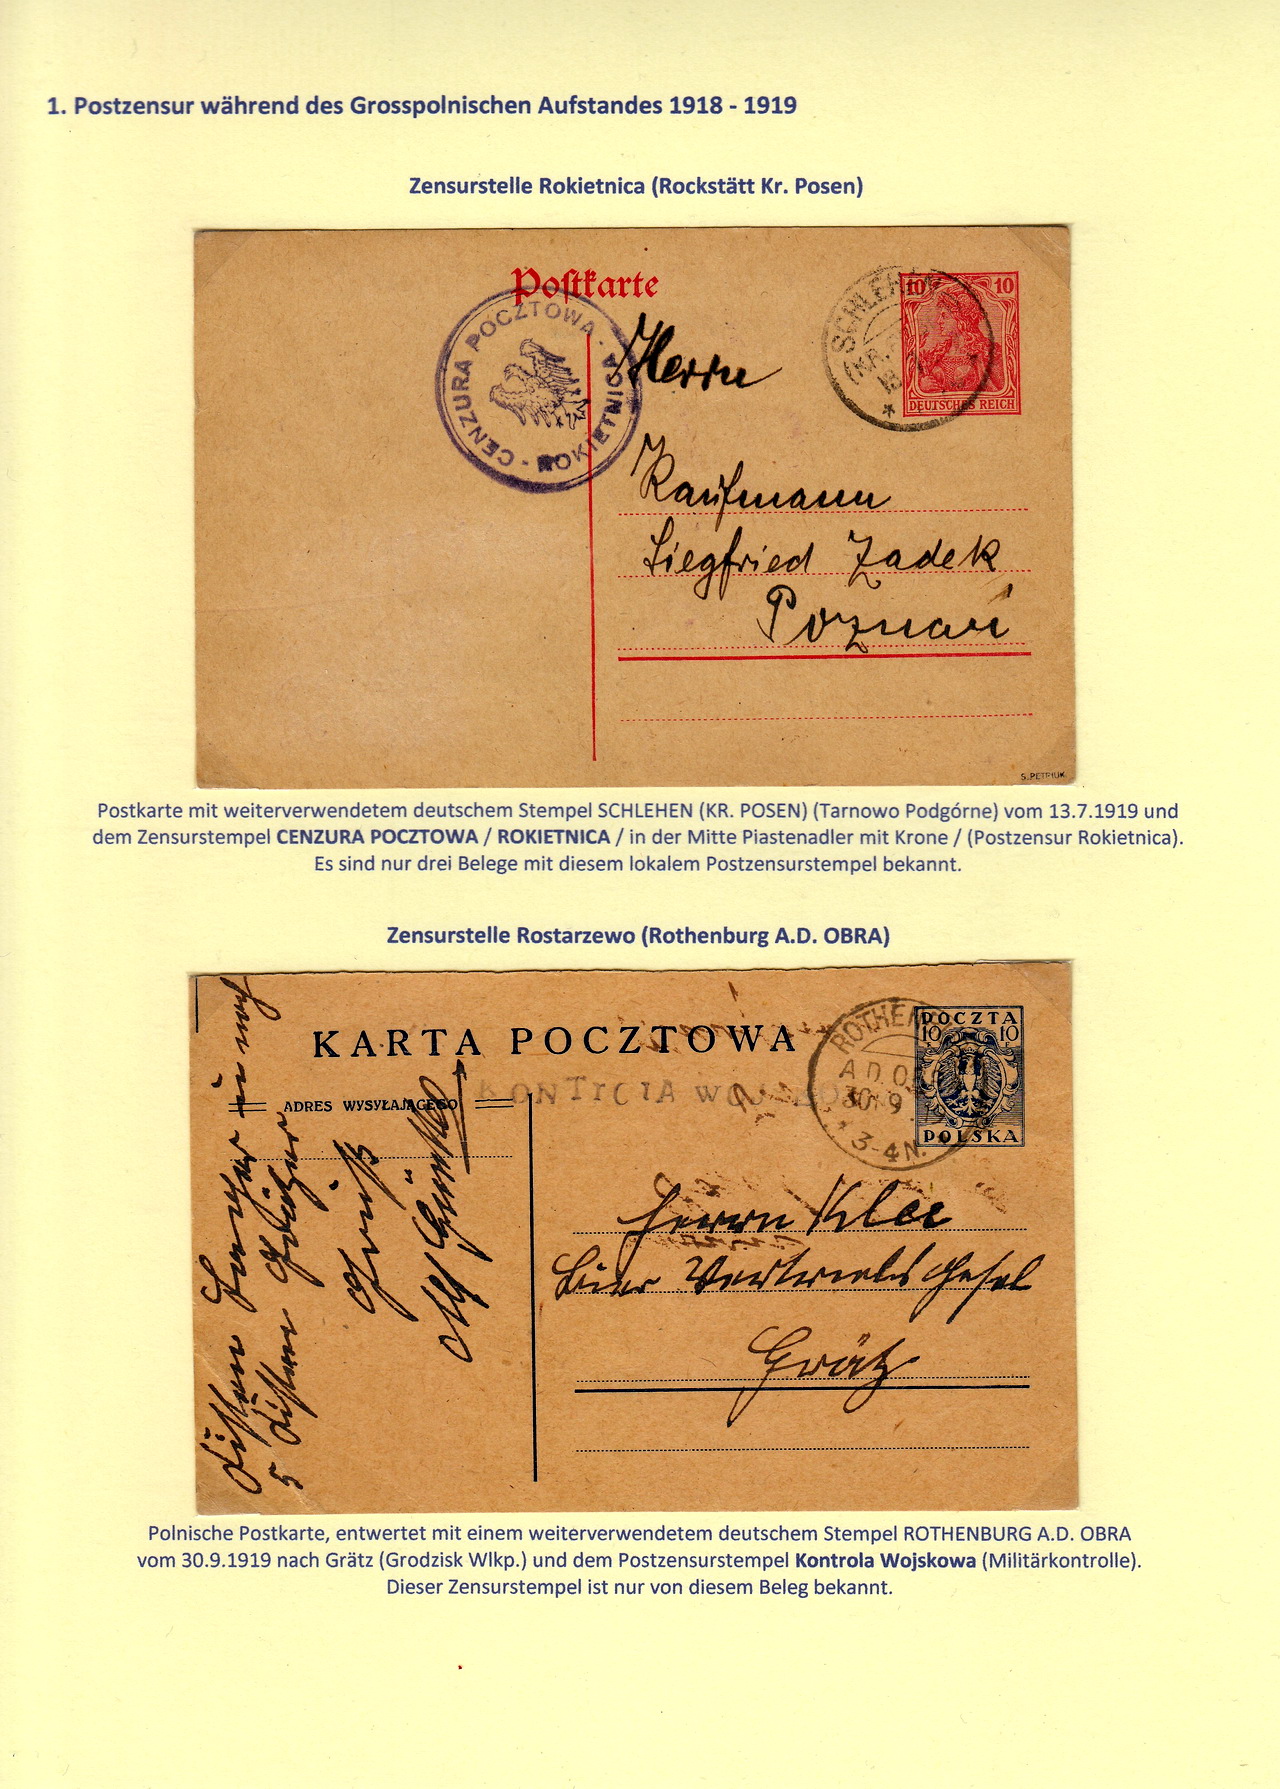 1. Postzensur während des Grosspolnischen Aufstandes 1918 - 1919
Zensurstelle Rokietnica (Rockstätt Kr. Posen)
Postkarte
CENZURA POCZTOWA - ROKIETNICA -
SCHLEHEN
(KR.
10 10
DEUTSCHES REICH
Herrn
Kaufmann
Siegfried Zadek
Poznań
S. PETRIUK
Postkarte mit weiterverwendetem deutschem Stempel SCHLEHEN (KR. POSEN) (Tarnowo Podgórne) vom 13.7.1919 und
dem Zensurstempel CENZURA POCZTOWA / ROKIETNICA / in der Mitte Piastenadler mit Krone / (Postzensur Rokietnica).
Es sind nur drei Belege mit diesem lokalem Postzensurstempel bekannt.
Zensurstelle Rostarzewo (Rothenburg A.D. OBRA)
KARTA POCZTOWA
ADRES WYSYŁAJĄCEGO
ROTHEN
A.D. OB
30 9
3-4N.
POCZTA
10 10
F. F.
POLSKA
Herrn Kloe
Bier Vertriebs Gesel
Grätz
Polnische Postkarte, entwertet mit einem weiterverwendetem deutschem Stempel ROTHENBURG A.D. OBRA
vom 30.9.1919 nach Grätz (Grodzisk Wlkp.) und dem Postzensurstempel Kontrola Wojskowa (Militärkontrolle).
Dieser Zensurstempel ist nur von diesem Beleg bekannt.